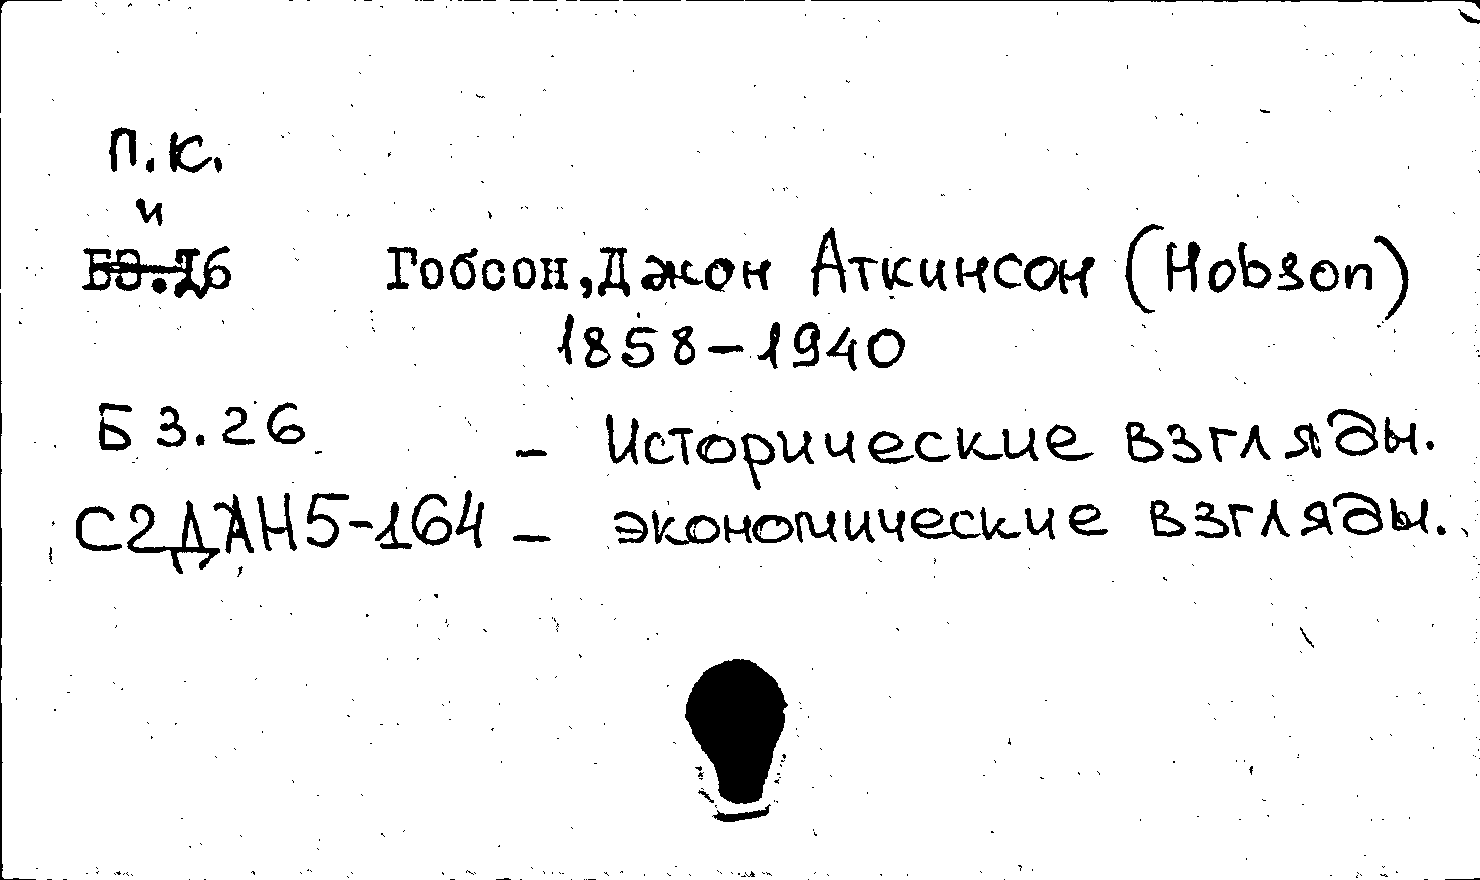 П.К.
и
Б3.26 Гобсон, Джон Аткинсон (Hobson)
1858-1940
Б 3.26 - Исторические взгляды.
С2ДАН5-164 - экономические взгляды.